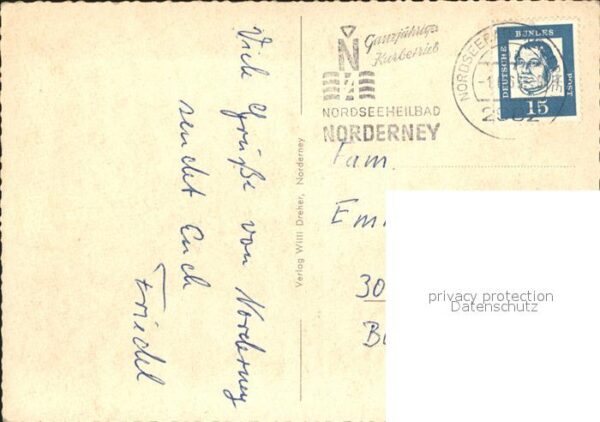 Viele Grüße von Norderney
sendet Euch
Friedel
Verlag Willi Dreher, Norderney
Ganzjähriger
Kurbetrieb
N
NORDSEEHEILBAD
NORDERNEY
NORDSEE
2982
DEUTSCHE BUNDESPOST
15
Fam.
Em
30
privacy protection
Datenschutz